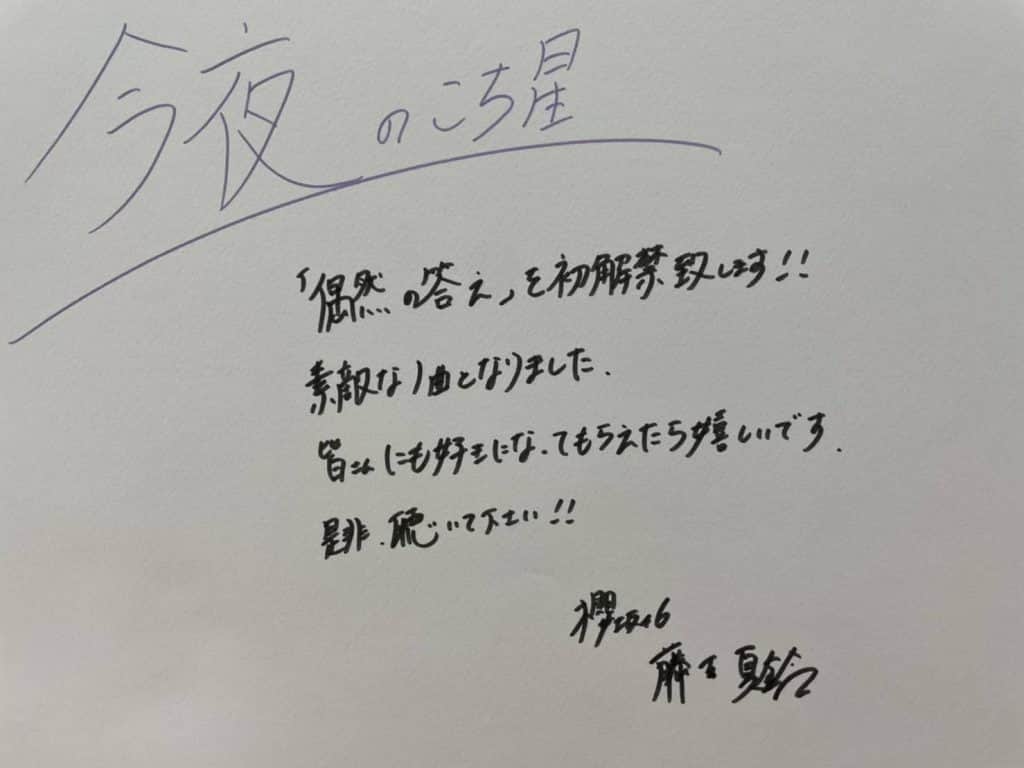 今夜のこち星
「偶然の答え」を初解禁致します!!
素敵な1曲となりました.
皆さんにも好きになってもらえたら嬉しいです.
是非、聴いて下さい!!
櫻坂46
藤吉夏鈴